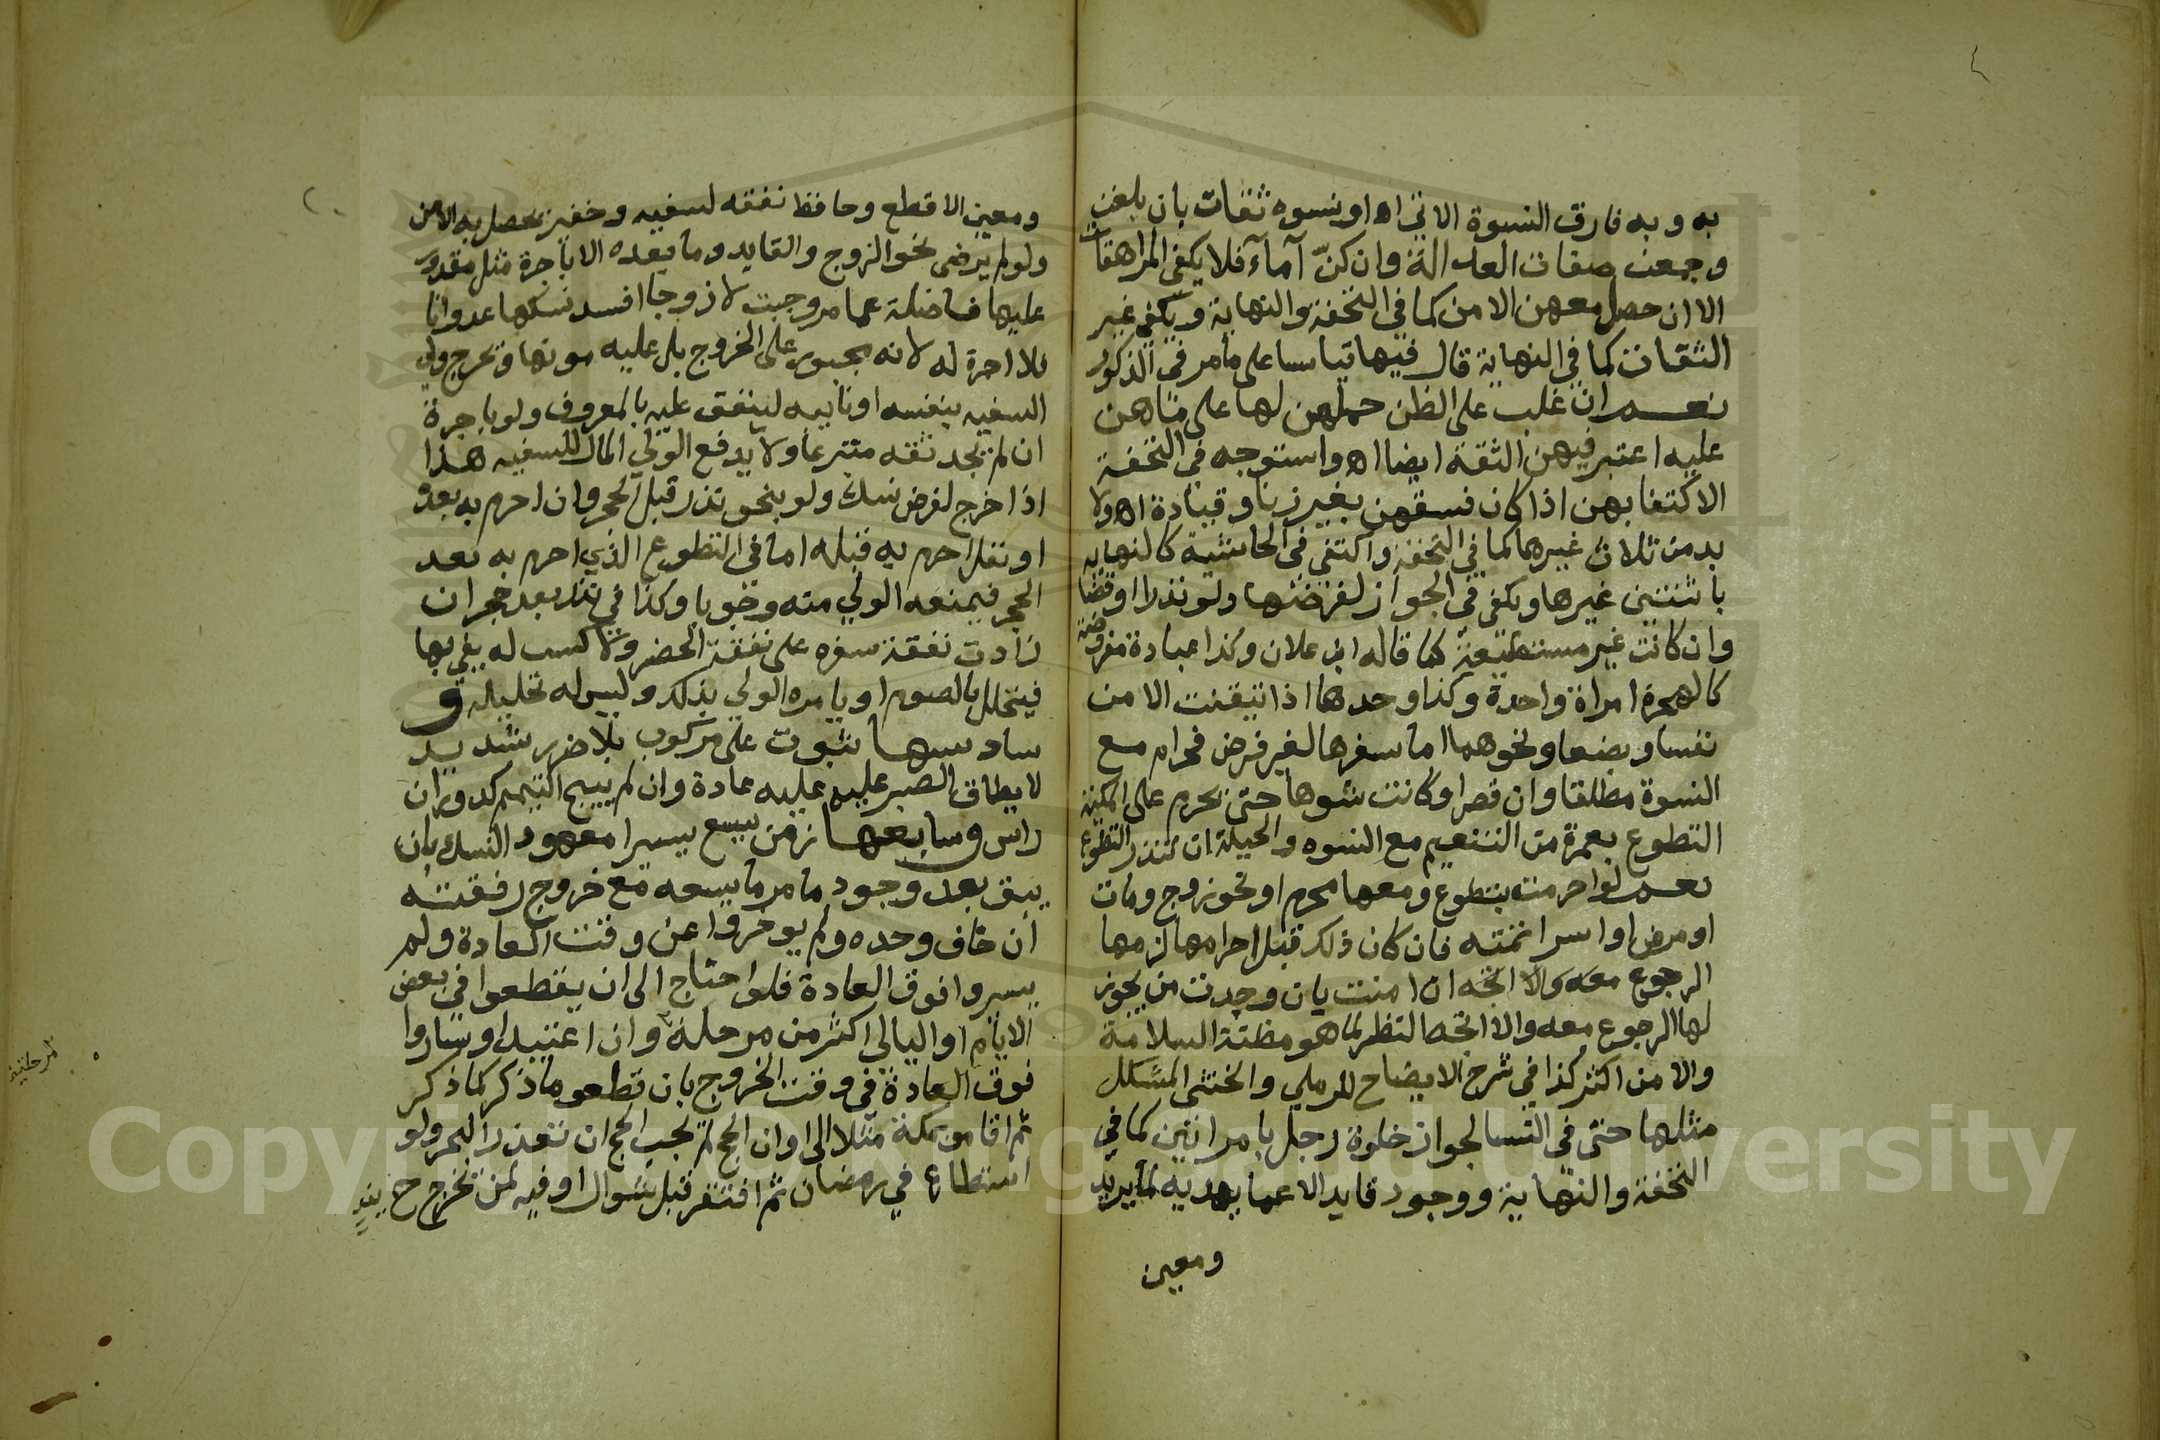 به وبه فارق النسوة الاتي اه او نسوه ثقات بان بلغن
وجمعن صفات العدالة وان كنّ آمآء فلا يكفي المراهقات
الا ان حصل معهن الامن كما في التحفة والنهاية ويكفي غير
الثقات كما في النهاية قال فيها قياسا على مامر في الذكور
نعم ان غلب على الظن حملهن لها على ماهن
عليه اعتبر فيهن الثقة ايضا اه واستوجه في التحفة
الاكتفا بهن اذا كان فسقهن بغير زنا وقيادة اه ولا
بد من ثلاث غيرها كما في التحفة واكتفى في الحاشية كالنهايه
باثنتين غيرها ويكفي في الجواز لفرضها ولو نذرا او قضا
وان كانت غير مستطيعة كما قاله ابن علان وكذا عبادة مفروضة
كالهجرة امراة واحدة وكذا وحدها اذا تيقنت الامن
نفسا وبضعا ونحوهما اما سفرها لغير فرض فحرام مع
النسوة مطلقا وان قصر او كانت شوها حتى يحرم على المكية
التطوع بعمرة من التنعيم مع النسوه والحيلة ان تنذر التطوع
نعم لو احرمت بتطوع ومعها محرم او نحو زوج ومات
او مرض او اسر اتمته فان كان ذلك قبل احرامها لزمها
الرجوع معه والا اتجه ان امنت بان وجدت من يجوز
لها الرجوع معه والا اتجه النظر لما هو مظنة السلامة
والامن اكثر كذا في شرح الايضاح للرملي والخنثى المشكل
مثلها حتى في النسا لجواز خلوة رجل بامراتين كما في
التحفة والنهاية ووجود قايد الاعما يهديه لما يريد
ومعين
ومعين الاقطع وحافظ نفقه لسفيه وخفير يحصل به الامن
ولو لم يرضى نحو الزوج والقايد وما بعده الا باجرة مثل مقدور
عليها فاضلة عما مر وجبت لا زوجا افسد نسكها عدوانا
فلا اجرة له لانه مجبور على الخروج بل عليه مونها ويخرج ولي
السفيه بنفسه او نايبه لينفق عليه بالمعروف ولو باجرة
ان لم يجد ثقه متبرعا ولا يدفع الولي المال للسفيه هذا
اذا خرج لفرض نسك ولو بنحو نذر قبل الحجر وان احرم به بعده
او نفل احرم به قبله اما في التطوع الذي احرم به بعد
الحجر فيمنعه الولي منه وجوبا وكذا في نذر بعد حجر ان
زادت نفقة سفره على نفقة الحضر ولا كسب له يفي بها
فيتحلل بالصوم او يامره الولي بذلك وليس له تحليله و
سادسها ثبوت على مركوب بلا ضرر شديد
لا يطاق الصبر عليه عليه عادة وان لم يبيح التيمم كدوران
راس وسابعها زمن يسع سيرا معهود النسك بان
يبق بعد وجود ما مر ما يسعه مع خروج رفقته
ان خاف وحده ولم يوخروا عن وقت العادة ولم
يسيروا فوق العادة فلو احتاج الى ان يقطعوا في بعض
الايام او اليالي اكثر من مرحلة وان اعتيد او ساروا
فوق العادة في وقت الخروج بان قطعو ما ذكر كما ذكر
ثم اقامو بمكة مثلا الى اوان الحج لم يجب الحج ان تعذر البحر ولو
استطاع في رمضان ثم افتقر قبل شوال او فيه لمن تخرج ح